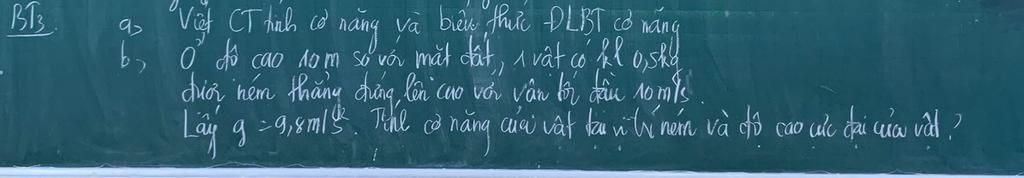 BT3 a, Viết CT tính cơ năng và biểu thức ĐLBT cơ năng
b, Ở độ cao 10m so với mặt đất, 1 vật có kl 0,5kg
được ném thẳng đứng lên cao với vận tốc đầu 10m/s.
Lấy g = 9,8m/s² Tính cơ năng của vật tại vị trí ném và độ cao cực đại của vật?